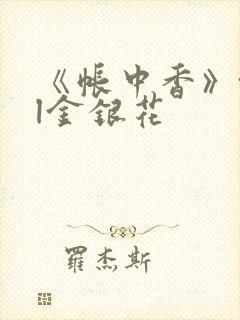 《帐中香》
l金银花
羅杰斯